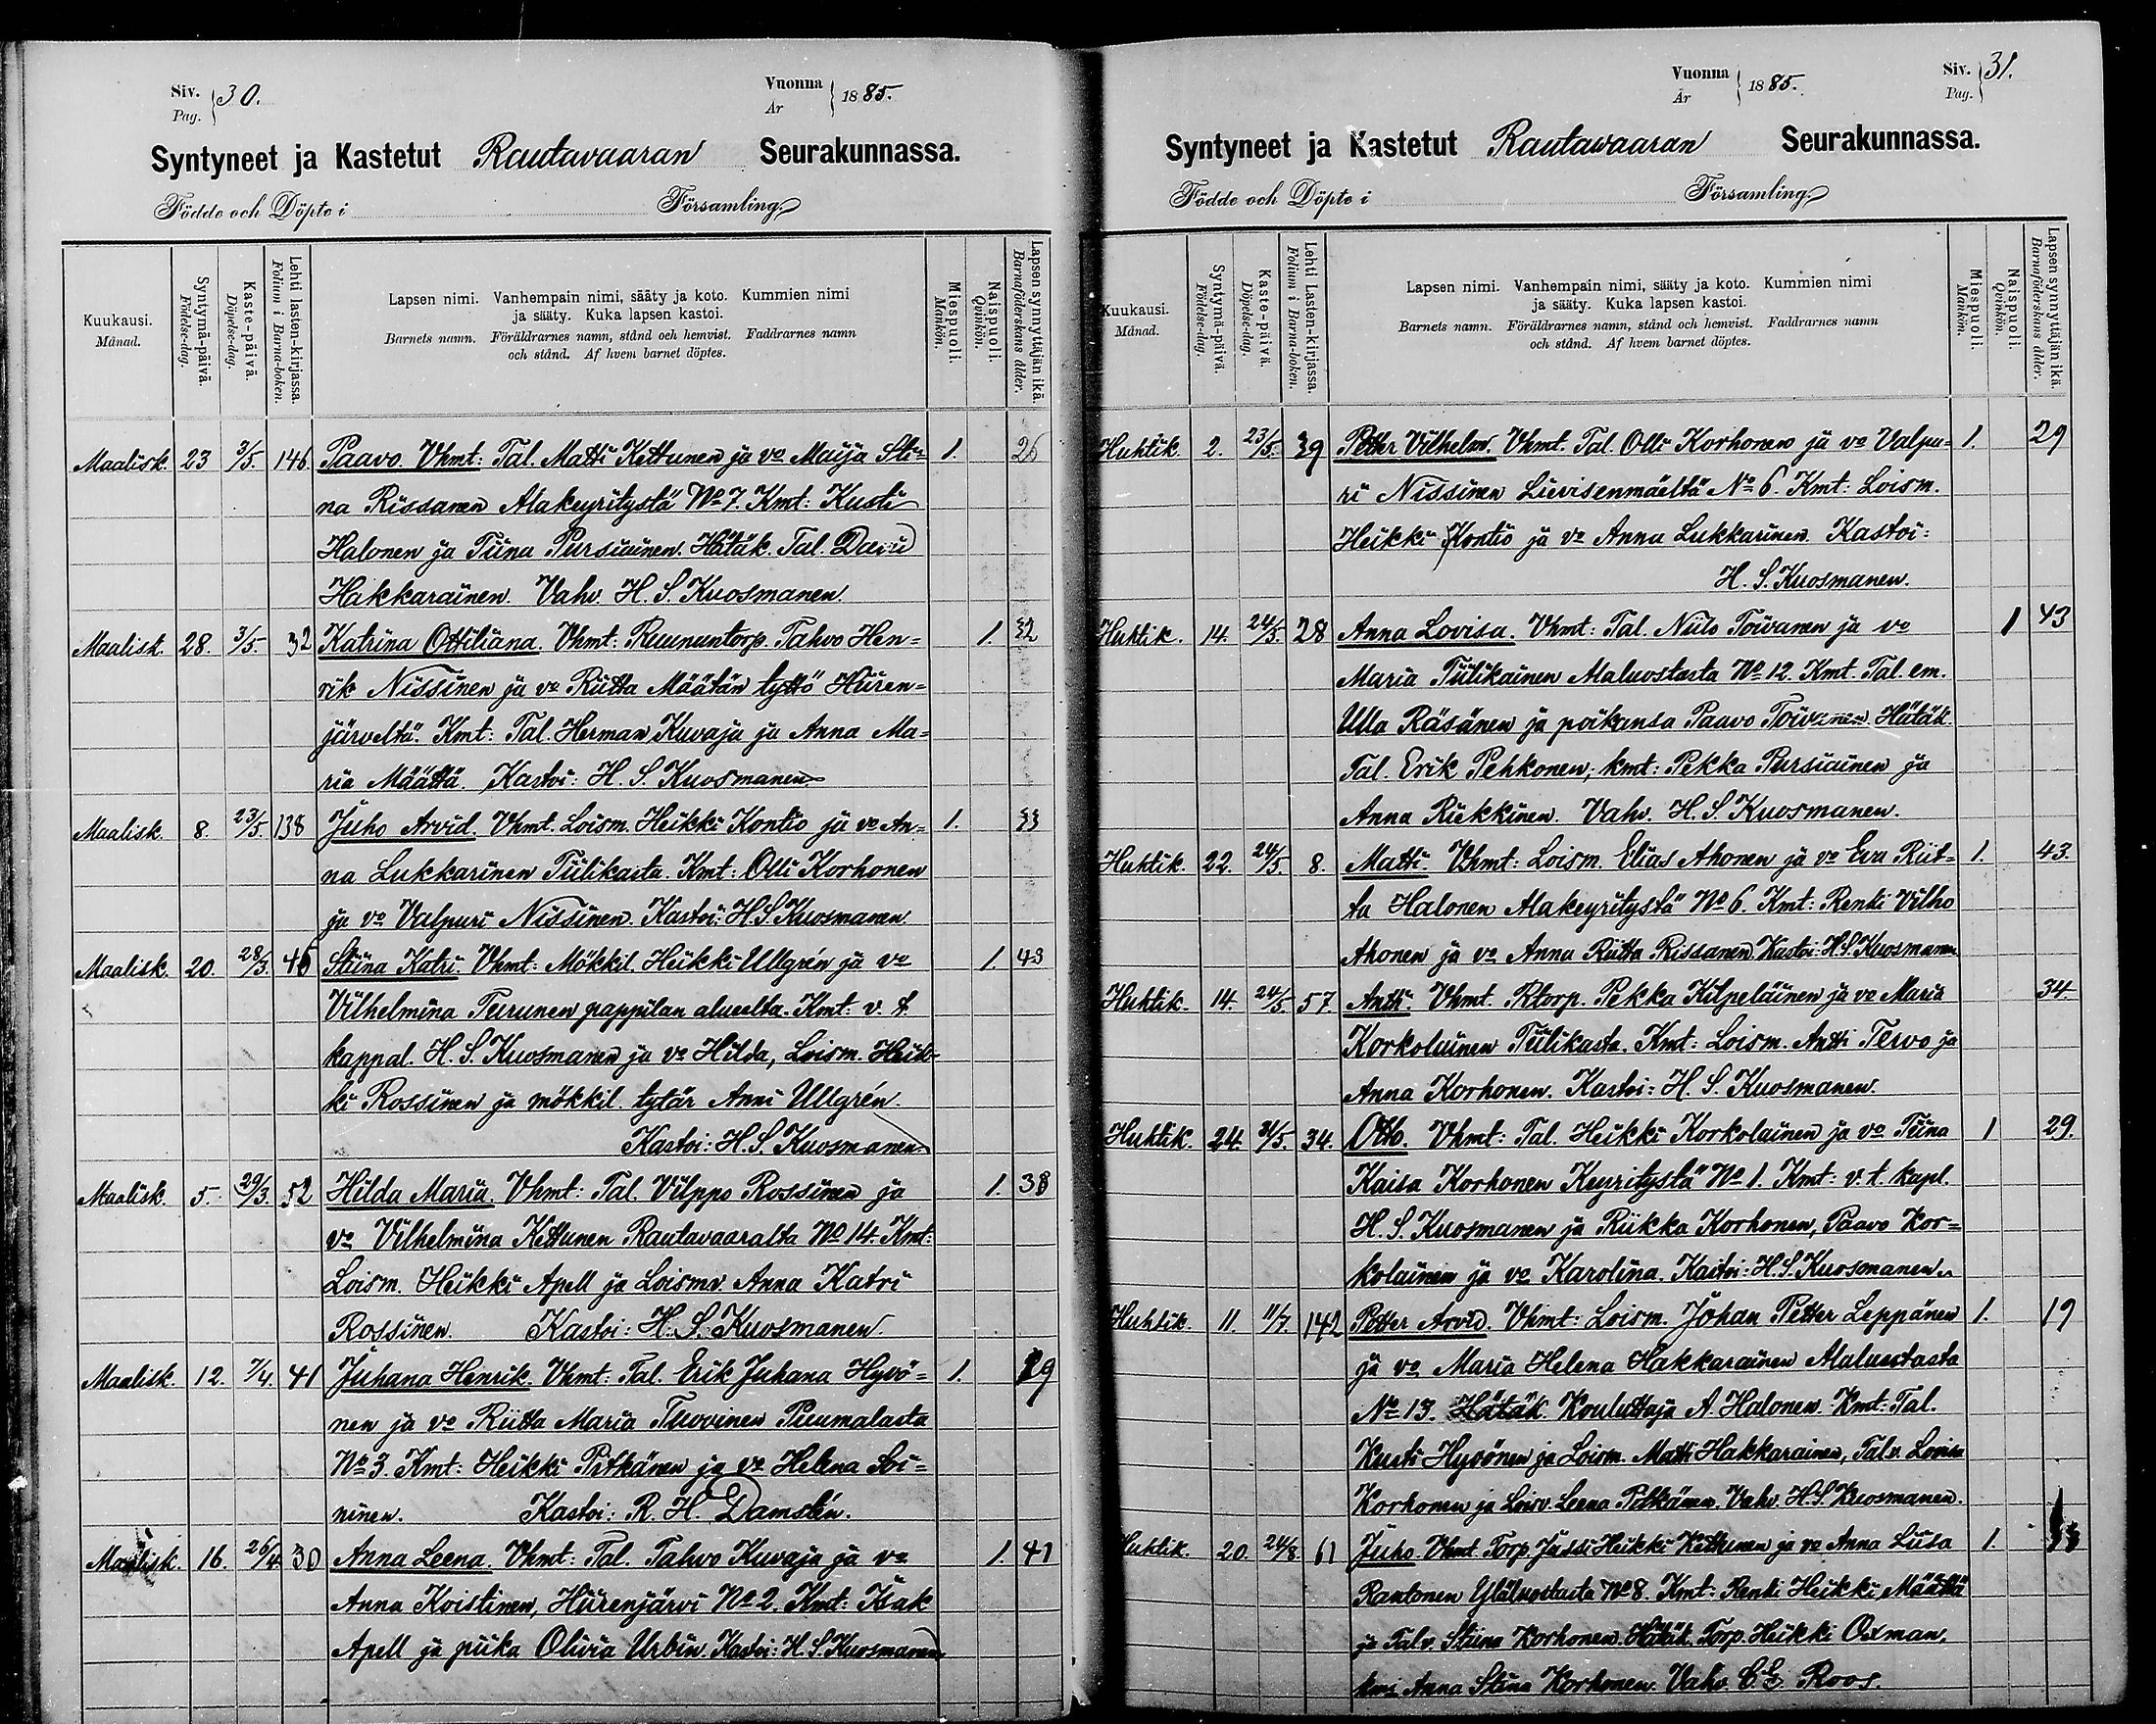 Siv. 30.
Pag.
Vuonna 1885.
År
Syntyneet ja Kastetut Rautavaaran Seurakunnassa.
Födde och Döpte i Församling.
Kuukausi.
Månad.
Syntymä-päivä.
Födelse-dag.
Kaste-päivä.
Döpelse-dag.
Lehti lasten-kirjassa.
Folium i Barna-boken.
Lapsen nimi. Vanhempain nimi, sääty ja koto. Kummien nimi
ja sääty. Kuka lapsen kastoi.
Barnets namn. Föräldrarnes namn, stånd och hemvist. Faddrarnes namn
och stånd. Af hvem barnet döptes.
Miespuoli.
Mankön.
Naispuoli.
Qvinkön.
Lapsen synnyttäjän ikä.
Barnaföderskans ålder.
Maalisk. 23 3/5. 146 Paavo. Vhmt: Tal. Matti Kettunen ja vo Maija Sti- 1. 26
na Rissanen Alakeyritystä No 7. Kmt: Kusti
Halonen ja Tiina Pursiainen. Hätäk. Tal. David
Hakkarainen. Vahv. H. S. Kuosmanen.
Maalisk. 28. 3/5. 32 Katrina Ottiliana. Vhmt: Ruununtorp. Tahvo Hen= 1. 32
rik Nissinen ja vo Riitta Määtän tyttö Hiiren=
järveltä. Kmt: Tal. Herman Kuvaja ja Anna Ma=
ria Määttä. Kastoi: H. S. Kuosmanen.
Maalisk. 8. 23/5. 138 Juho Arvid. Vhmt. Loism. Heikki Kontio ja vo An= 1. 33
na Lukkarinen Tiilikasta. Kmt: Olli Korhonen
ja vo Valpuri Nissinen. Kastoi: H. S. Kuosmanen.
Maalisk. 20. 28/3. 46 Stiina Katri. Vhmt: Mökkil. Heikki Ullgrén ja vo 1. 43
Vilhelmina Teirunen pappilan alueelta. Kmt: v. t.
kappal. H. S. Kuosmanen ja vo Hilda, Loism. Heik-
ki Rossinen ja mökkil. tytär Anni Ullgrén.
Kastoi: H. S. Kuosmanen.
Maalisk. 5. 29/3. 52 Hilda Maria. Vhmt: Tal. Vilppo Rossinen ja 1. 38
vo Vilhelmina Kettunen Rautavaaralta No 14. Kmt:
Loism. Heikki Apell ja Loismv. Anna Katri
Rossinen. Kastoi: H. S. Kuosmanen.
Maalisk. 12. 7/4. 41 Juhana Henrik. Vhmt: Tal. Erik Juhana Hyvö= 1. 29
nen ja vo Riitta Maria Tuovinen Puumalasta
No 3. Kmt: Heikki Pitkänen ja vo Helena Soi=
ninen. Kastoi: R. H. Damstén.
Maalisk. 16. 26/4. 30 Anna Leena. Vhmt: Tal. Tahvo Kuvaja ja vo 1. 41
Anna Koistinen, Hiirenjärvi No 2. Kmt: Isak
Apell ja piika Olivia Urbin. Kastoi: H. S. Kuosmanen.
Siv. 31.
Pag.
Vuonna 1885.
År
Syntyneet ja Kastetut Rautawaaran Seurakunnassa.
Födde och Döpte i Församling.
Kuukausi.
Månad.
Syntymä-päivä.
Födelse-dag.
Kaste-päivä.
Döpelse-dag.
Lehti Lasten-kirjassa.
Folium i Barna-boken.
Lapsen nimi. Vanhempain nimi, sääty ja koto. Kummien nimi
ja sääty. Kuka lapsen kastoi.
Barnets namn. Föräldrarnes namn, stånd och hemvist. Faddrarnes namn
och stånd. Af hvem barnet döptes.
Miespuoli.
Mankön.
Naispuoli.
Qvinkön.
Lapsen synnyttäjän ikä.
Barnaföderskans ålder.
Huhtik. 2. 23/5. 39 Petter Vilhelm. Vhmt. Tal. Olli Korhonen ja vo Valpu= 1. 29
ri Nissinen Lievisenmäeltä No 6. Kmt: Loism.
Heikki Kontio ja vo Anna Lukkarinen. Kastoi:
H. S. Kuosmanen.
Huhtik. 14. 24/5. 28 Anna Lovisa. Vhmt: Tal. Niilo Toivanen ja vo 1 43
Maria Tiilikainen Alaluostasta No 12. Kmt. Tal. em.
Ulla Räsänen ja poikansa Paavo Toivanen. Hätäk.
Tal. Erik Pehkonen; kmt: Pekka Pursiainen ja
Anna Riekkinen. Vahv. H. S. Kuosmanen.
Huhtik. 22. 24/5. 8. Matti. Vhmt: Loism. Elias Ahonen ja vo Eva Riit= 1. 43.
ta Halonen Alakeyritystä No 6. Kmt: Renki Vilho
Ahonen ja vo Anna Riitta Rissanen. Kastoi: H. S. Kuosmanen.
Huhtik. 14. 24/5. 57. Antti. Vhmt. Rtorp. Pekka Kilpeläinen ja vo Maria 34.
Korkolainen Tiilikasta. Kmt: Loism. Antti Tervo ja
Anna Korhonen. Kastoi: H. S. Kuosmanen.
Huhtik. 24. 31/5. 34. Otto. Vhmt: Tal. Heikki Korkolainen ja vo Tiina 1 29.
Kaisa Korhonen Keyritystä No 1. Kmt: v. t. kapl.
H. S. Kuosmanen ja Riikka Korhonen, Paavo Kor=
kolainen ja vo Karolina. Kastoi: H. S. Kuosmanen.
Huhtik. 11. 11/7. 142 Petter Arvid. Vhmt: Loism. Johan Petter Leppänen 1. 19
ja vo Maria Helena Hakkarainen Alaluostasta
No 13. Hätäk. Kouluttaja A. Halonen. Kmt: Tal.
Kusti Hyvönen ja Loism. Matti Hakkarainen, Talv. Lovisa
Korhonen ja Loisv. Leena Pitkänen. Vahv. H. S. Kuosmanen.
Huhtik. 20. 24/8. 61 Juho. Vhmt. Torp. Jussi Heikki Kettunen ja vo Anna Liisa 1.
Rautonen Yläluostasta No 8. Kmt: Renki Heikki Määttä
ja Talv. Stiina Korhonen. Hätäk. Torp. Heikki Oxman,
Anna Stina Korhonen. Vahv. C. E. Roos.